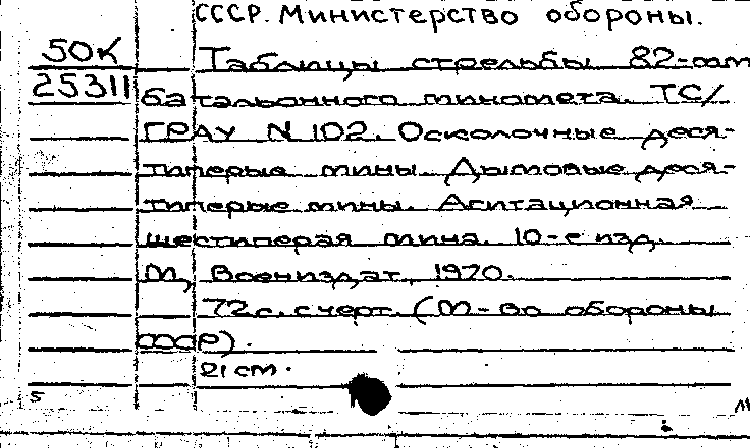 СССР. Министерство обороны.
50К Таблицы стрельбы 82-мм
25311 батальонного миномета. ТС/
ГРАУ N 102. Осколочные деся-
типерые мины. Дымовые деся-
типерые мины. Агитационная
шестиперая мина. 10-е изд.
М., Воениздат, 1970.
72 с. с черт. (М-во обороны
СССР).
21 см.